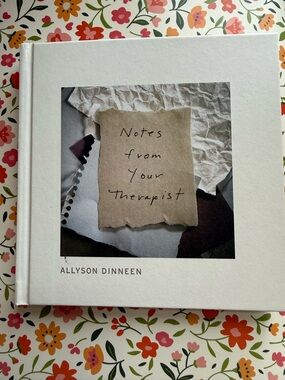 Notes
from
Your
Therapist
ALLYSON DINNEEN